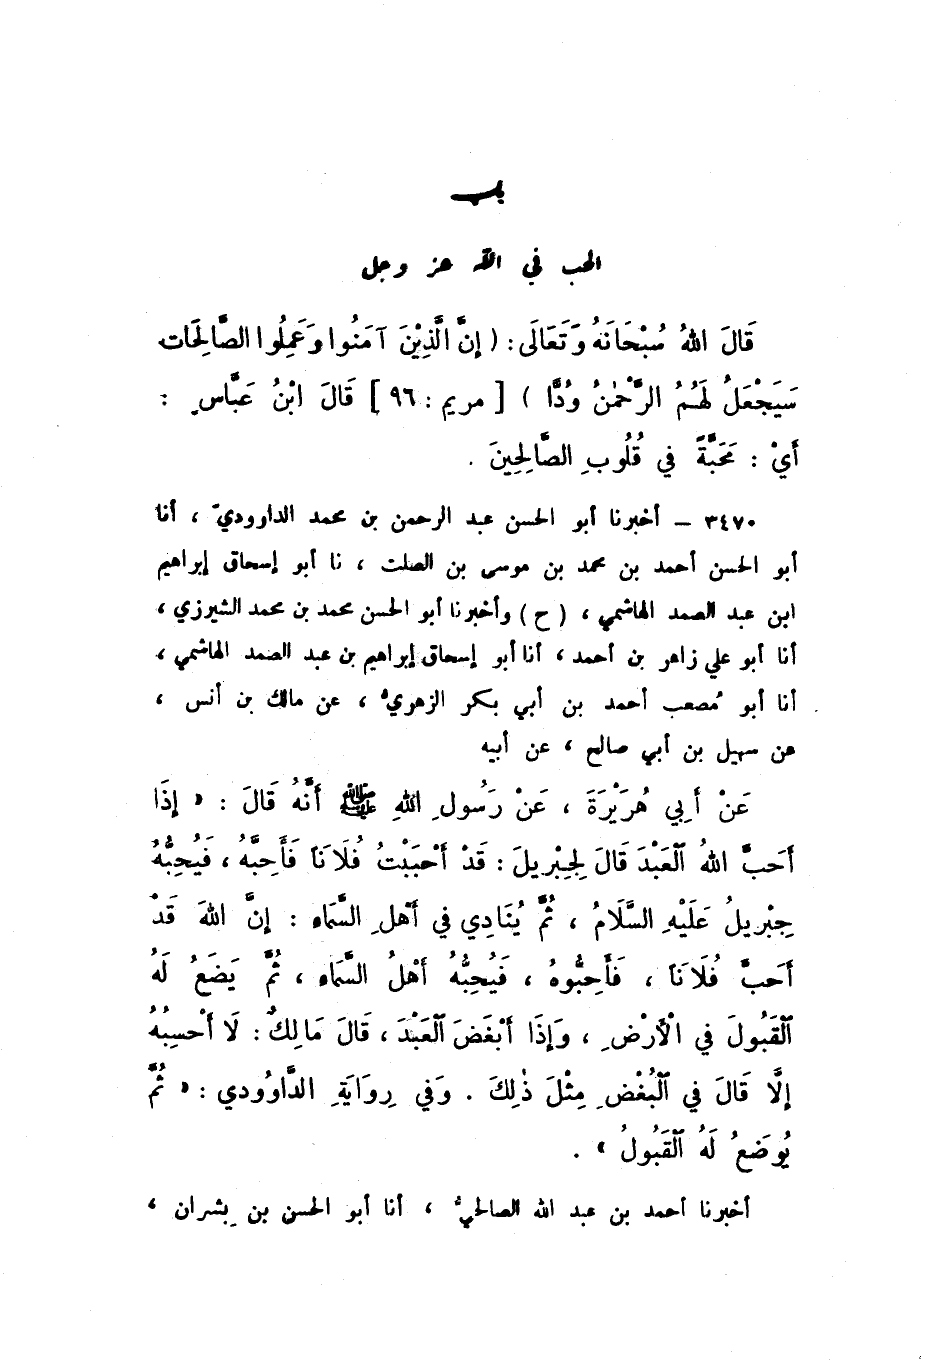 باب
الحب في الله عز وجل
قَالَ اللهُ سُبْحَانَهُ وَتَعَالَى : ( إِنَّ الَّذِيْنَ آمَنُوا وَعَمِلُوا الصَّالِحَاتِ
سَيَجْعَلُ لَهُمُ الرَّحْمٰنُ وُدًّا ) [ مريم : ٩٦ ] قَالَ ابْنُ عَبَّاسٍ :
أَيْ : مَحَبَّةً فِي قُلُوبِ الصَّالِحِينَ .
٣٤٧٠ – أخبرنا أبو الحسن عبد الرحمن بن محمد الداووديّ ، أنا
أبو الحسن أحمد بن محمد بن موسى بن الصلت ، نا أبو إسحاق إبراهيم
ابن عبد الصمد الهاشمي ، ( ح ) وأخبرنا أبو الحسن محمد بن محمد الشيرزي ،
أنا أبو علي زاهر بن أحمد ، أنا أبو إسحاق إبراهيم بن عبد الصمد الهاشمي ،
أنا أبو مُصعب أحمد بن أبي بكر الزهريُّ ، عن مالك بن أنس ،
عن سهيل بن أبي صالح ، عن أبيه
عَنْ أَبِي هُرَيْرَةَ ، عَنْ رَسُولِ اللهِ ﷺ أَنَّهُ قَالَ : « إِذَا
أَحَبَّ اللهُ الْعَبْدَ قَالَ لِجِبْرِيلَ : قَدْ أَحْبَبْتُ فُلَانَاً فَأَحِبَّهُ ، فَيُحِبُّهُ
جِبْرِيلُ عَلَيْهِ السَّلَامُ ، ثُمَّ يُنَادِي فِي أَهْلِ السَّمَاءِ : إِنَّ اللهَ قَدْ
أَحَبَّ فُلَانَاً ، فَأَحِبُّوهُ ، فَيُحِبُّهُ أَهْلُ السَّمَاءِ ، ثُمَّ يَضَعُ لَهُ
الْقَبُولَ فِي الْأَرْضِ ، وَإِذَا أَبْغَضَ الْعَبْدَ ، قَالَ مَالِكٌ : لَا أَحْسِبُهُ
إِلَّا قَالَ فِي الْبُغْضِ مِثْلَ ذٰلِكَ . وَفِي رِوَايَةِ الدَّاوُودِي : « ثُمَّ
يُوضَعُ لَهُ الْقَبُولُ » .
أخبرنا أحمد بن عبد الله الصالحيُّ ، أنا أبو الحسن بن بِشران ،